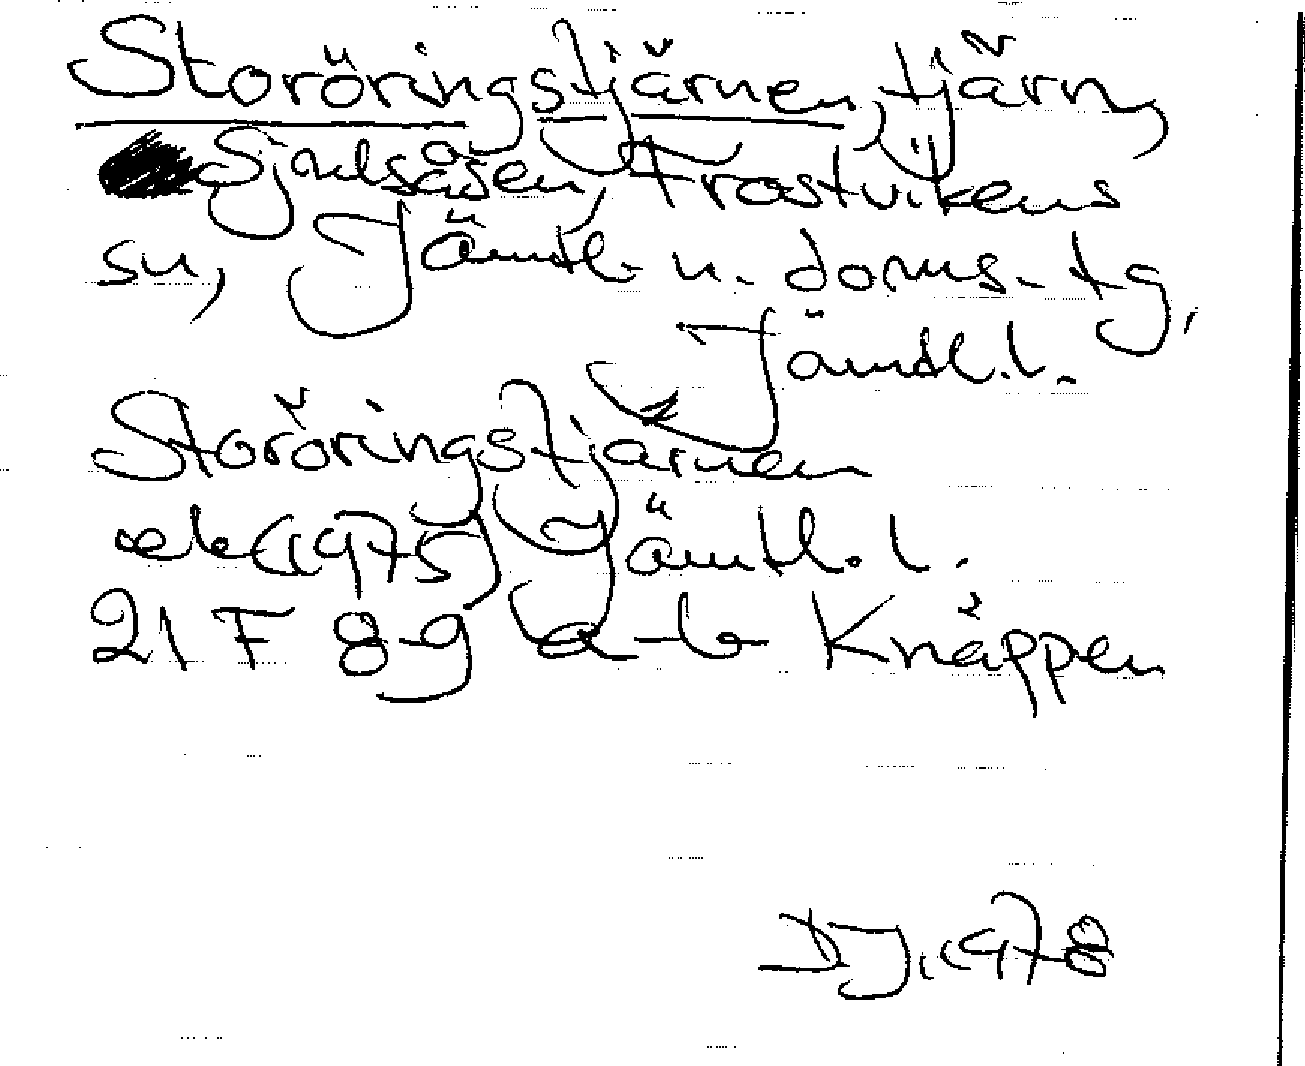 Storöringstjärnen, tjärn,
Sjulsåsen, Frostvikens
sn, Jämtl. n. doms. tg,
Jämtl. l.
Storöringstjärnen
ek (1975) Jämtl. l.
21 F 8-9 a-b Knäppen
DJ. 1978